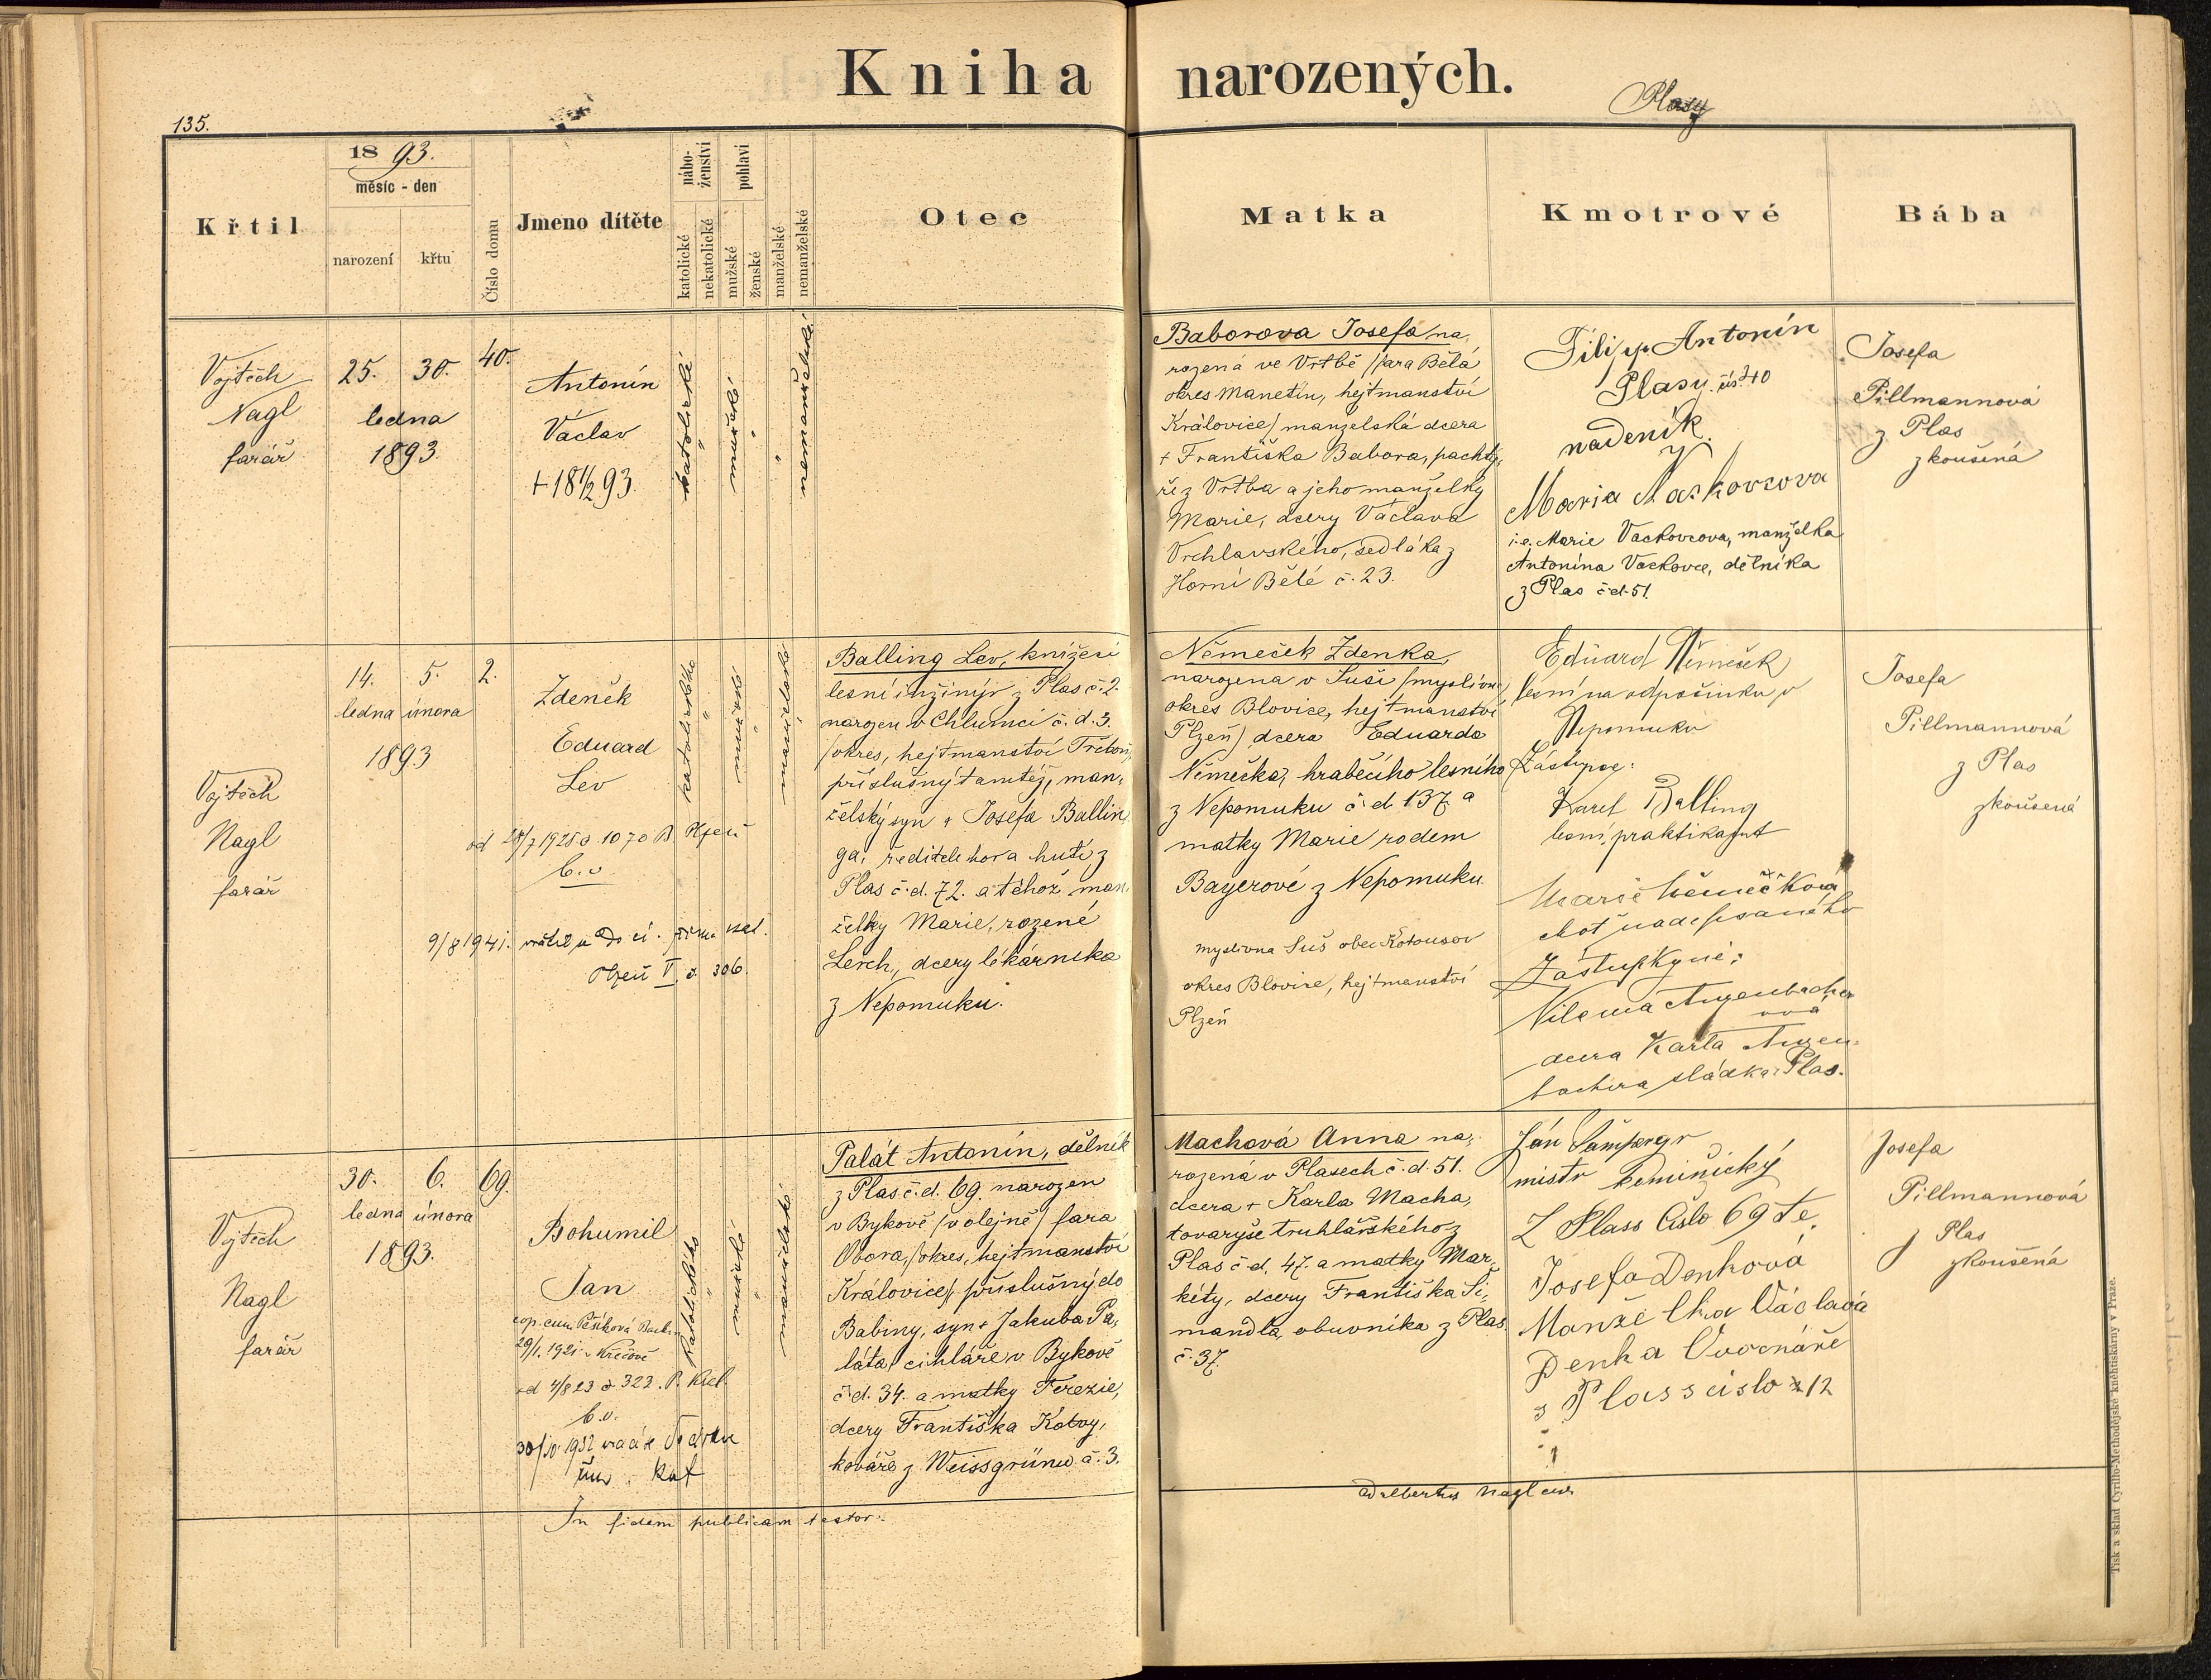 Kniha narozených.
Plasy
135.
Křtil
18 93.
měsíc - den
narození
křtu
Číslo domu
Jmeno dítěte
nábo-
ženství
katolické
nekatolické
pohlaví
mužské
ženské
manželské
nemanželské
Otec
Matka
Kmotrové
Bába
Vojtěch
Nagl
farář
25. 30.
ledna
1893.
40.
Antonín
Václav
+ 18 1/2 93.
katolické
mužské
nemanželské
Baborova Josefa na,
rozená ve Vrtbě /fara Bělá
okres Manetín, hejtmanství
Královice/ manželská dcera
+ Františka Babora, pachtý,
ře z Vrtba a jeho manželky
Marie, dcery Václava
Vrchlavského, sedláka z
Horní Bělé č. 23.
Filipp Antonín
Plasy. čís. 40
nadeník.
Maria
i.e. Marie Vackovcova, manželka
Antonína Vackovce, dělníka
z Plas č d. 51.
Josefa
Pillmannová
z Plas
zkoušená
Vojtěch
Nagl
farář
14. 5.
ledna února
1893
2.
Zdeněk
Eduard
Lev
od 28/7 1925 č. 1070 B. Plzeň
b. v.
9/8 1941.
Plzeň V č. 306.
katolického
mužské
manželské
Balling Lev, knížecí
lesní inžinýr z Plas č. 2.
narozen v Chlumci č. d. 3.
/okres, hejtmanství Třeboň,
příslušný tamtéž, man,
želský syn + Josefa Ballin,
ga, ředitele hor a hutí z
Plas č. d. 72. a téhož man,
želky Marie, rozené
Lerch, dcery lékárníka
z Nepomuku.
Němeček Zdenka,
narozena v Suši /myslivna,
okres Blovice, hejtmanství
Plzeň/ dcera Eduarda
Němečka, hraběcího lesního
z Nepomuku č d. 137. a
matky Marie rodem
Bayerové z Nepomuku.
myslivna Suš obec Kotousov
okres Blovice, hejtmanství
Plzeň
Eduard Němeček
lesní na odpočinku v
Nepomuku
Zástupce:
Karel Balling
lesní praktikant
Marie Němečková
choť nadepsaného
Zástupkyně:
Vilemá Augenbacher
ová
dcera Karla Augen-
bachera sládka z Plas.
Josefa
Pillmannová
z Plas
zkoušená
Vojtěch
Nagl
farář
30. 6.
ledna února
1893.
69.
Bohumil
Jan
cop. cum
29/1. 1921 v
od 4/8 23 č. 323. P. Kral.
b. v.
30/10 1932
katolického
mužské
manželské
Palát Antonín, dělník
z Plas č. d. 69. narozen
v Bykově /v olejně/ fara
Obora, /okres, hejtmanství
Královice/, příslušný do
Babiny, syn + Jakuba Pa,
láta, cihláře v Bykově
č d. 34. a matky Terezie,
dcery Františka Kotvy,
kováře z Weissgrünu č. 3.
Machová Anna na,
rozená v Plasech č. d. 51.
dcera + Karla Macha,
tovaryše truhlářského z
Plas č d. 47. a matky Mar,
kéty, dcery Františka Si,
mandla, obuvníka z Plas
č. 37.
Ján
mistr
Z Plass Číslo 69 te.
Josefa Denková
Manželka Václava
Denka Ovocnáře
s Plass cislo 12
Josefa
Pillmannová
z Plas
zkoušená
In fidem publicam testor:
Adalbertus Nagl cur.
Tisk a sklad Cyrillo-Methodějské knihtiskárny v Praze.